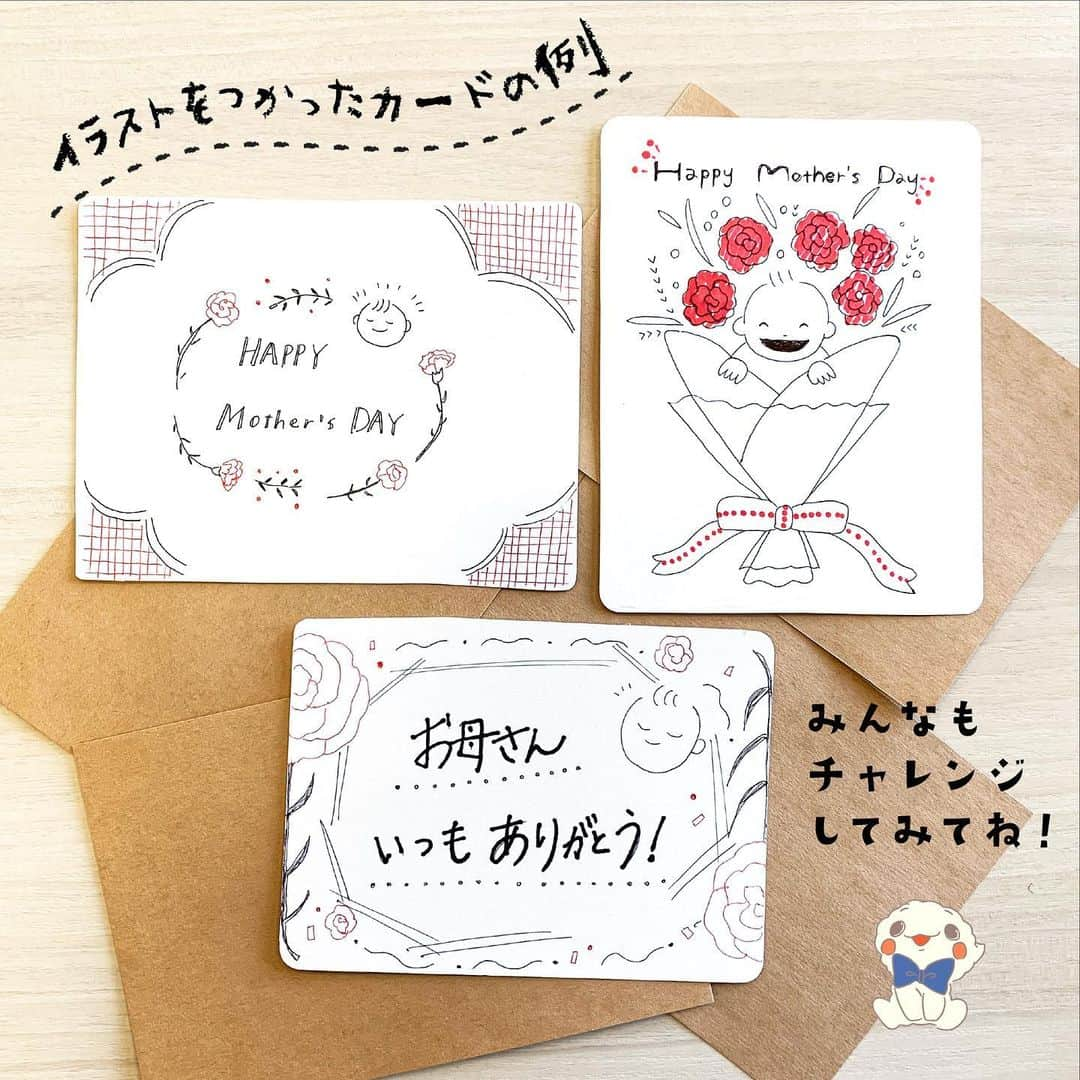 イラストをつかったカードの例
HAPPY
Mother's DAY
Happy Mother's Day
お母さん
いつもありがとう!
みんなも
チャレンジ
してみてね!